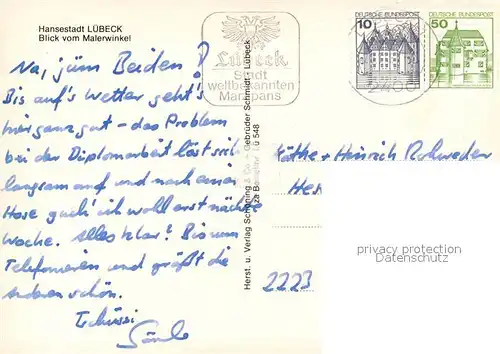 Hansestadt LÜBECK
Blick vom Malerwinkel
Na, ihr Beiden!
Bis auf's Wetter geht's
hier ganz gut - das Problem
bei der Diplomarbeit löst sich
langsam auf und nach einer
Hose guck' ich wohl erst nächste
Woche. Alles klar? Bis zum
Telefonieren und grüßt die
anderen schön.
Tschüssi
Lübeck
Stadt
weltbekannten
Marzipans
DEUTSCHE BUNDESPOST
10
DEUTSCHE BUNDESPOST
50
2400
Herst. u. Verlag Schöning & Co. - Gebrüder Schmidt, Lübeck
Lü 548
Käthe + Heinrich Rohweder
2223
privacy protection
Datenschutz